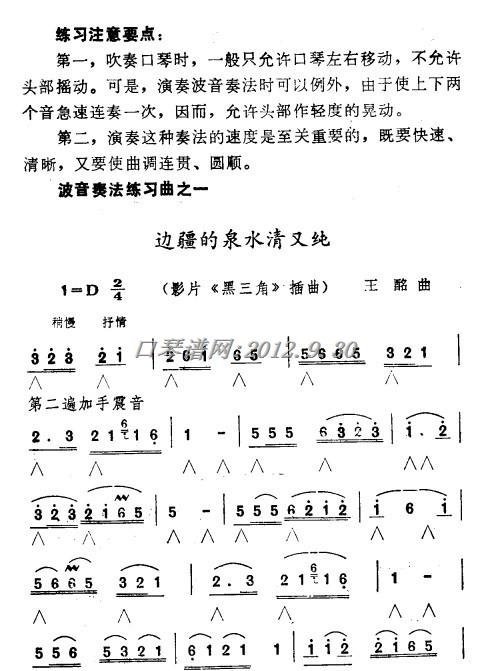 练习注意要点：
第一，吹奏口琴时，一般只允许口琴左右移动，不允许
头部摇动。可是，演奏波音奏法时可以例外，由于使上下两
个音急速连奏一次，因而，允许头部作轻度的晃动。
第二，演奏这种奏法的速度是至关重要的，既要快速、
清晰，又要使曲调连贯、圆顺。
波音奏法练习曲之一
边疆的泉水清又纯
1=D 2/4 （影片《黑三角》插曲） 王 酩 曲
稍慢 抒情
口琴谱网:2012.9.30
3 2 3 2 1 | 2 6 1 6 5 | 5 6 6 5 3 2 1
第二遍加手震音
2. 3 2 1 6 1 6 | 1 - | 5 5 5 6 3 2 3 | 1. 2 |
3 2 3 2 1 6 5 | 5 - | 5 5 5 6 2 1 2 | 1 6 1 |
5 6 6 5 3 2 1 | 2. 3 2 1 6 1 6 | 1 - |
5 5 6 5 3 2 3 5 | 6 1 2 1 1 | 1 1 2 2 1 6 5 |